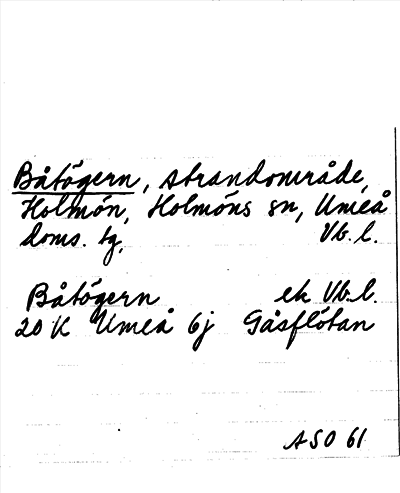 Båtögern, strandområde,
Holmön, Holmöns sn, Umeå
doms. tg, Vb. l.
Båtögern ek Vb. l.
20 K Umeå 6j Gåsflötan
ASO 61